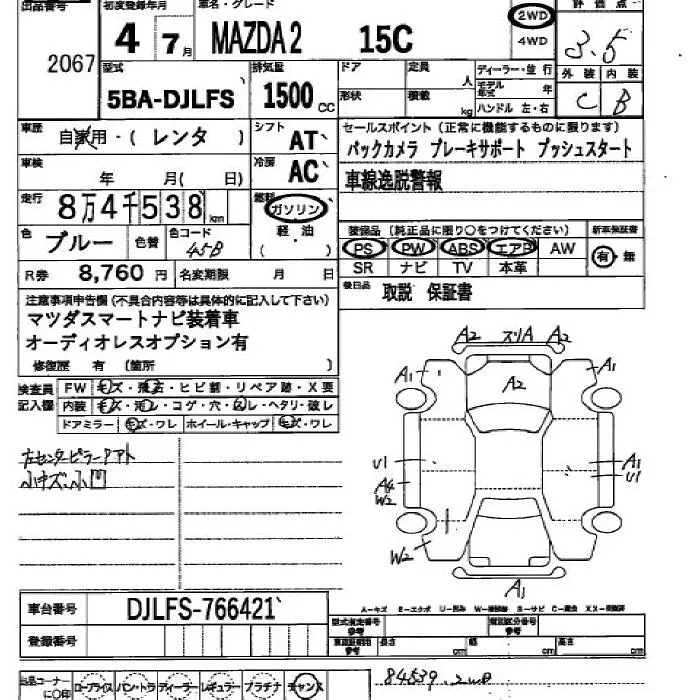 出品番号 初度登録年月 車名・グレード 評価点
2067 4 7月 MAZDA2 15C 2WD 3.5
4WD
型式 排気量 ドア 定員 ディーラー・並行 外装 内装
5BA-DJLFS 1500CC 人 モデル年式 年 C B
形状 積載 kg ハンドル 左・右
車歴 自家用・(レンタ) シフト AT セールスポイント(正常に機能するものに限ります)
バックカメラ ブレーキサポート プッシュスタート
車検 年 月(日) 冷房 AC 車線逸脱警報
走行 8万4千538km 燃料 ガソリン
軽・油
( )
装備品(純正品に限り○をつけてください) 新車保証書
色 ブルー 色替 色コード 45B PS PW ABS エアB AW 有・無
SR ナビ TV 本革
R券 8,760円 名変期限 月 日 後日品 取説 保証書
注意事項申告欄(不具合内容等は具体的に記入して下さい)
マツダスマートナビ装着車
オーディオレスオプション有
修復歴 有 (箇所 )
検査員記入欄 FW キズ・飛石・ヒビ割・リペア跡・X要
内装 キズ・汚レ・コゲ・穴・スレ・ヘタリ・破レ
ドアミラー キズ・ワレ ホイール・キャップ キズ・ワレ
左センターピラーPアト
小キズ、小凹
A2 スリA A2
A1 A2 A1
U1 A1
A4 U1
W2
W2
A1
A-キズ E-エクボ U-凹み W-補修跡 S-サビ C-腐食 XX-交換済
車台番号 DJLFS-766421
登録番号
型式指定番号 参考 類別区分番号 参考
長さ cm 幅 cm 高さ cm
出品コーナーに○印 ロープライス バン・トラ ディーラー レギュラー プラチナ チャンス
84539